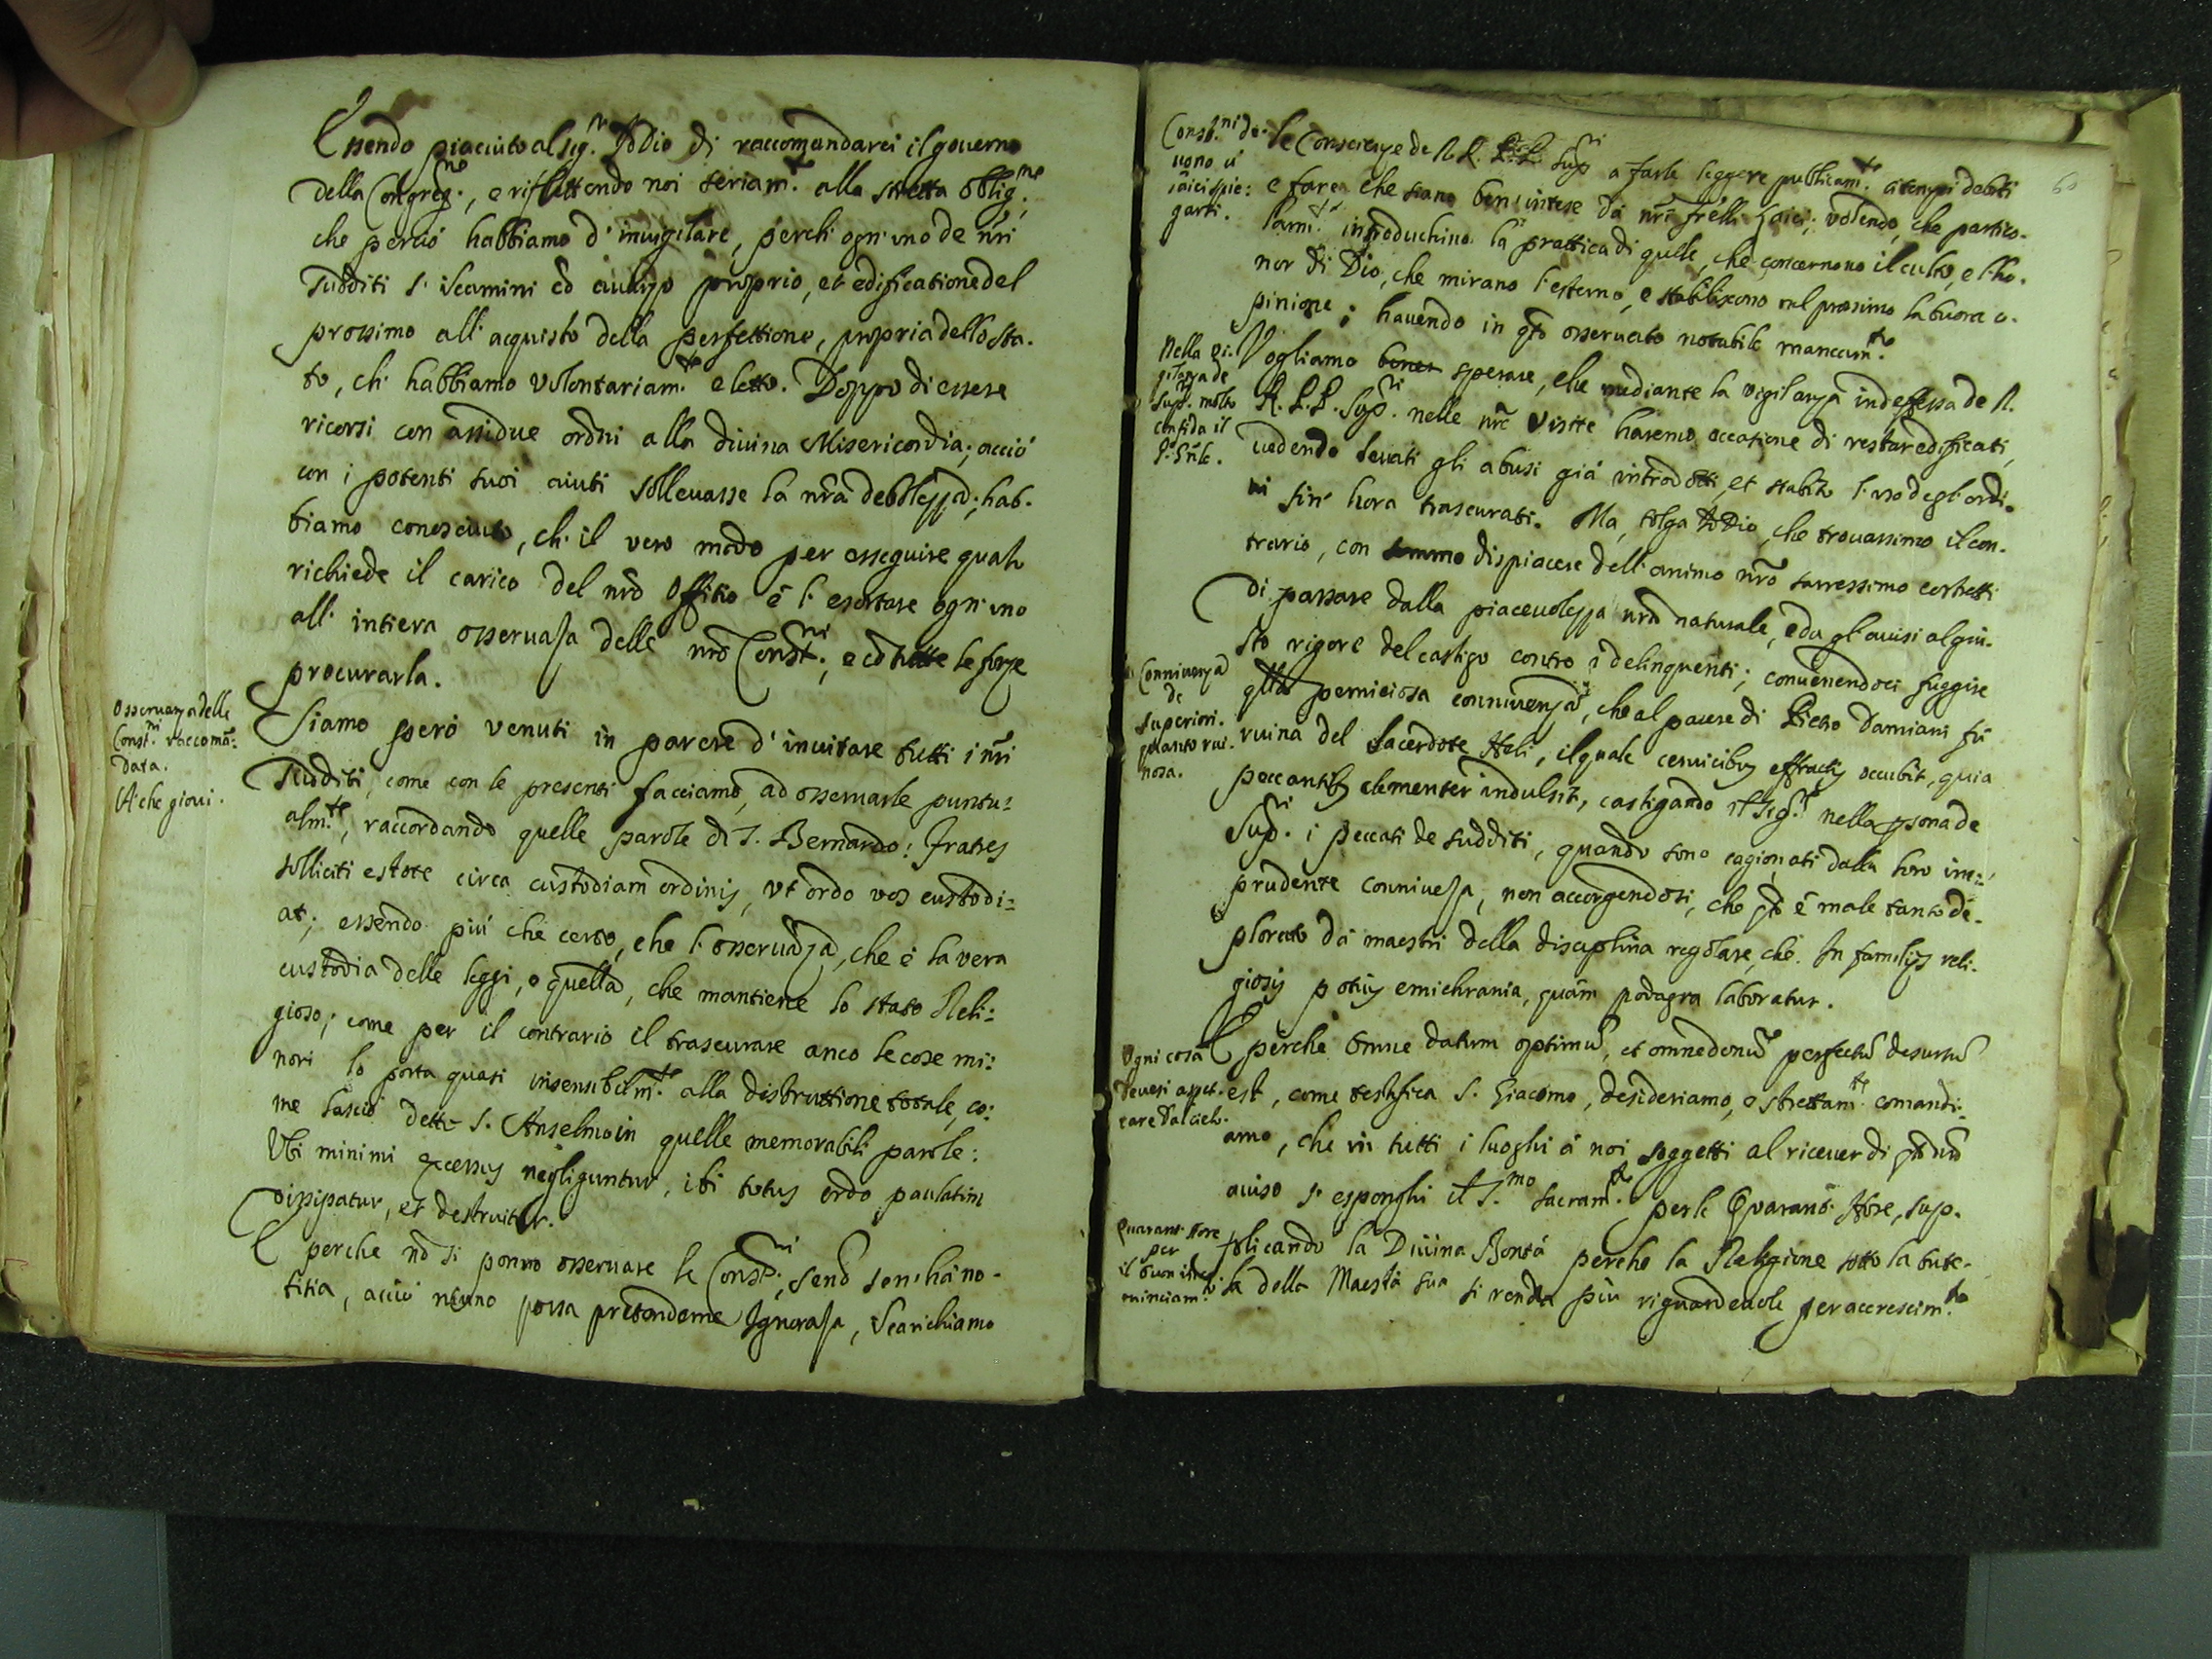 Essendo piaciuto al Sig.r Iddio di raccomandarci il gouerno
della Congreg.ne, e riflettendo noi seriam.te alla stretta oblig.ne,
che perciò habbiamo d'inuigilare, perch'ogn'uno de nři
sudditi s'incamini cō auāzo proprio, et edificatione del
prossimo all'acquisto della perfettione, propria dello sta-
to, ch'habbiamo volontariam.te eletto. Doppo di essere
ricorsi con assidue oratni alla diuina Misericordia; acciò
con i potenti suoi aiuti solleuasse la nřa debolezza; hab-
biamo conosciuto, ch'il vero modo per esseguire quāto
richiede il carico del nřo Offitio è l'esortare ogn'uno
all'intiera osseruāza delle nře Const.ni, e cō tutte le forze
procurarla.
Osseruanza delle
Const.ni raccomā-
data.
Siamo però venuti in parere d'inuitare tutti i nři
sudditi, come con le presenti facciamo, ad osseruarle puntu-
A che gioui.
alm.te, raccordando quelle parole di S. Bernardo: Fratres
solliciti estote circa custodiam ordinis, vt ordo vos custodi-
at; essendo più che certo, che l'osseruanza, che è la vera
custodia delle leggi, è quella, che mantiene lo stato Reli-
gioso; come per il contrario il trascurare anco le cose mi-
nori lo porta quasi insensibilm.te alla distruttione totale, co-
me lasciò detto S. Anselmo in quelle memorabili parole:
Vbi minimi excessus negliguntur, ibi totus ordo paulatim
dissipatur, et destruitur.
E perche nō si ponno osseruare le Const.ni, se nō se n'hà no-
titia, acciò niuno possa pretenderne Ignorāza, Incarichiamo
60
Const.ni de-
uono à
laici spie-
garsi.
le Conscienze de R. R. P. P. Sup.ri a farle leggere publicam.te à tempi debiti
e fare, che siano ben intese da nři frēlli laici; volendo, che partico-
larm.te introduchino la prattica di quelle, che concernono il culto, e l'ho-
nor di Dio, che mirano l'esterno, e stabiliscono nel prossimo la buona o-
pinione; hauendo in q̄sto osseruato notabile mancam.to.
Nella vi-
gilanza de
Sup.ri molto
confida il
P. Gn̄le.
Vogliamo sperare, che mediante la vigilanza indefessa de R.
R. P. P. Sup.ri nelle nře visite haremo occatione di restar edificati,
vedendo leuati gli abusi già introdotti, et stabilito l'uso degl'ordi-
ni sin' hora trascurati. Ma, tolga Iddio, che trouassimo il con-
trario, con sommo dispiacere dell'animo nřo saressimo costretti
di passare dalla piaceuolezza nřa naturale, e da gl'auisi al giu-
sto rigore del castigo contro i delinquenti; conuenendoci fuggire
Conniuenza
de
Superiori
quanto rui-
nosa.
q̄lla perniciosa conniuenza, che al parere di Pietro Damiani fù
ruina del Sacerdote Heli, il quale ceruicibus effractis occubit, quia
peccantibus clementer indulsit, castigando il Sig.r nella p̄sona de
Sup.ri i peccati de sudditi, quando sono cagionati dalla loro im-
prudente conniuēza, non accorgendosi, che q̄sto è male tanto de-
plorato da maestri della disciplina regolare, che. In familijs reli-
giosis potius emichrania, quàm podagra laboratur.
Ogni cosa
deuesi aspet-
tare dal cielo.
E perche omne datum optimū, et omne donū perfectū desursū
est, come testifica S. Giacomo, desideriamo, e strettam.te comandi-
amo, che in tutti i luoghi à noi soggetti al riceuer di q̄sto nřo
auiso s'esponghi il S.mo Sacram.to per le Quarant' Hore, sup-
Quarant' Hore
per
il buon inco-
minciam.to
plicando la Diuina Bontà perche la Religione sotto la tute-
la della Maestà sua si renda più riguardeuole per accrescim.to